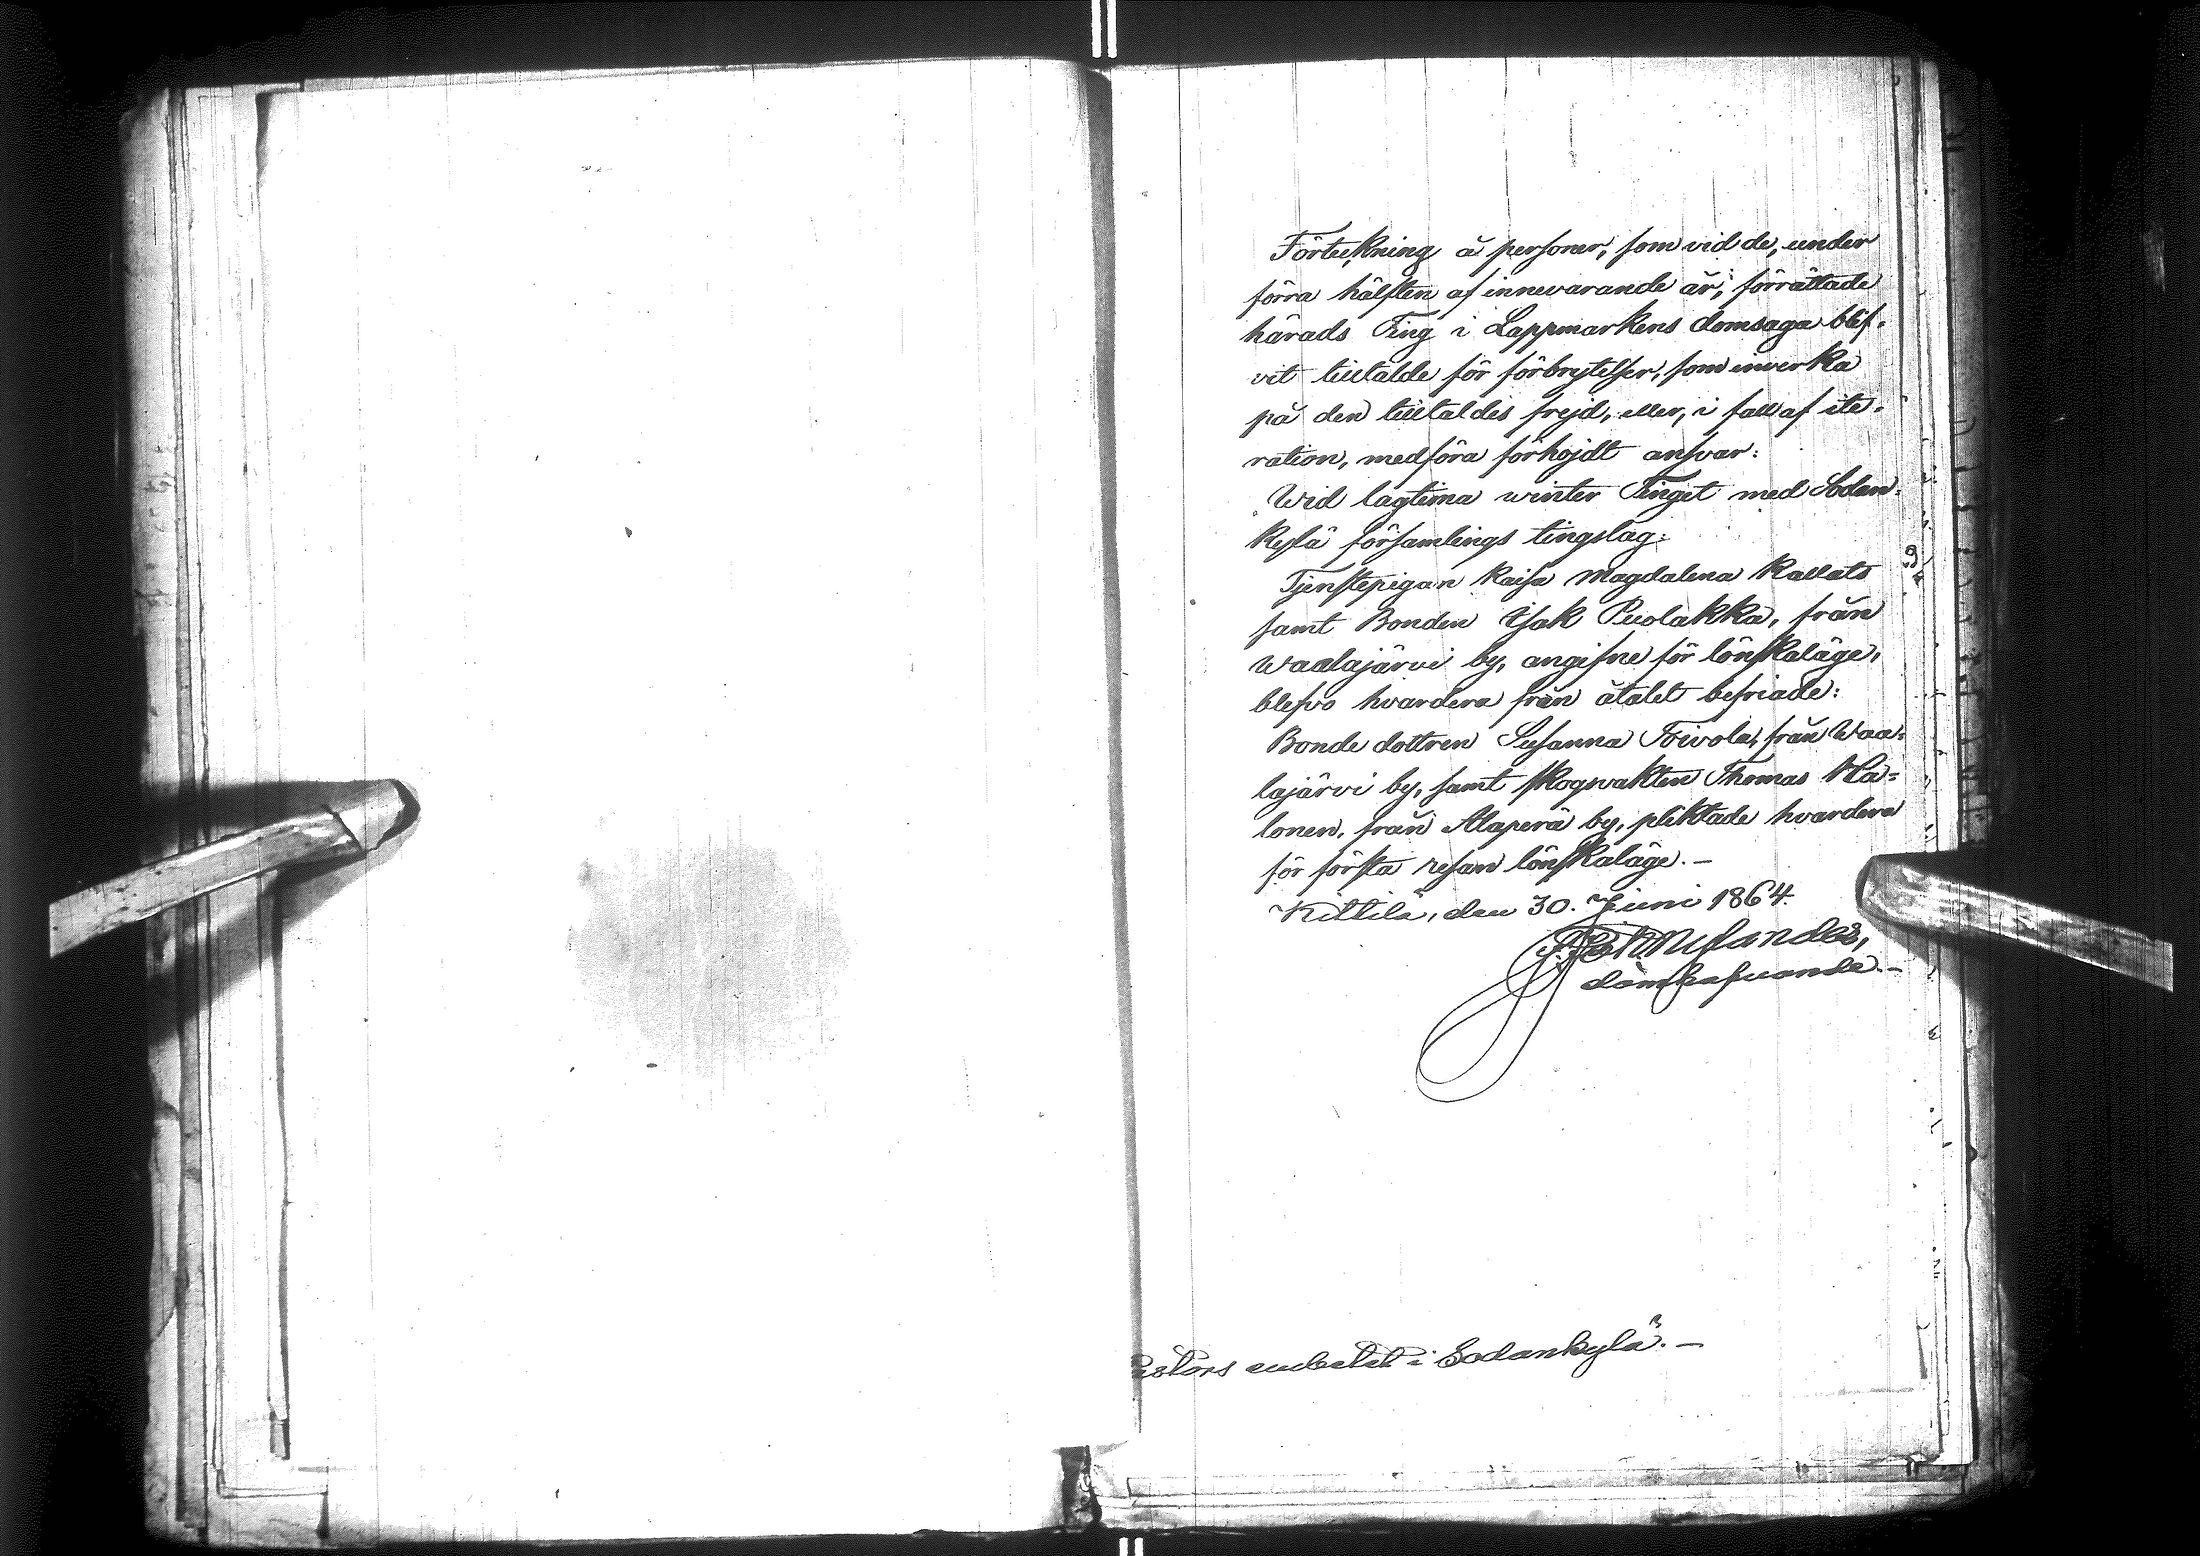 Förteckning å personer, som vid de, under
förra hälften af innevarande år, förrättade
härads Ting i Lappmarkens domsaga blif-
vit tilltalde för förbrytelser, som inverka
på den tilltaldes frejd, eller, i fall af ite-
ration, medföra förhöjdt ansvar:
Wid lagtima winter Tinget med Sodan-
kylä församlings tingslag:
Tjenstepigan Kaisa Magdalena Kallats
samt Bonden Isak Puolakka, från
Waalajärvi by, angifne för lönskaläge,
blefvo hvardera från åtalet befriade:
Bonde dottren Susanna Toivola, från Waa-
lajärvi by, samt skogvakten Thomas Ha=
lonen, från Alaperä by, pliktade hvardera
för första resan lönskaläge.-
Kittilä, den 30. Juni 1864.
Nylander,
domhafvande.-
astors embetet i Sodankylä.-